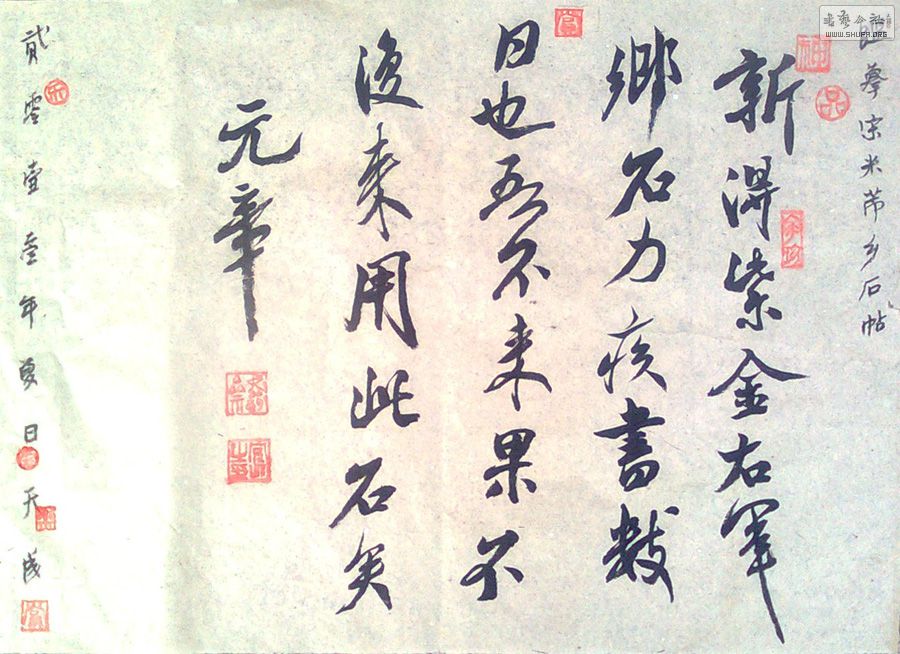 書藝公社
WWW.SHUFA.ORG
摹宋米芾乡石帖
新得紫金右軍
鄉石力疾書數
日也吾不来果不
復来用此石矣
元章
貳零壹叁年夏日天成